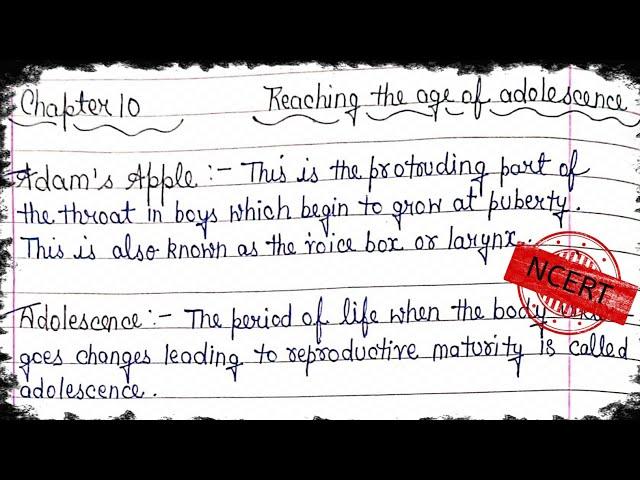 Chapter 10 Reaching the age of adolescence
Adam's Apple :- This is the protruding part of
the throat in boys which begin to grow at puberty.
This is also known as the voice box or larynx.
NCERT
Adolescence :- The period of life when the body
goes changes leading to reproductive maturity is called
adolescence.